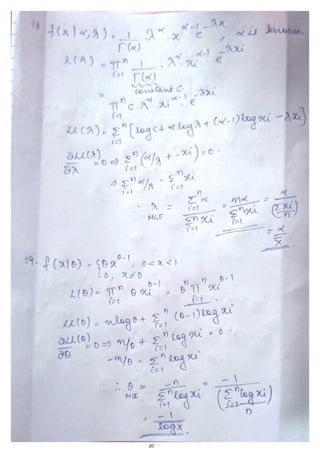 18. f(x|α,λ) = 1/Γ(α) · λ^α · x^(α-1) · e^(-λx), α is known.
L(λ) = π^n_{i=1} 1/Γ(α) · λ^α · xi^(α-1) · e^(-λxi)
constant C.
= π^n_{i=1} C · λ^α xi^(α-1) · e^(-λxi)
LL(λ) = Σ^n_{i=1} [log C + α log λ + (α-1) log xi - λxi]
∂LL(λ)/∂λ = 0 ⇒ Σ^n_{i=1} (α/λ + -xi) = 0.
⇒ Σ^n_{i=1} α/λ = Σ^n_{i=1} xi
∴ λ_MLE = Σ^n_{i=1} α / Σ^n_{i=1} xi = nα / Σ^n_{i=1} xi = α / (Σxi/n)
= α/x̄.
19. f(x|θ) = {θx^(θ-1), 0<x<1
{0, x≤0
L(θ) = π^n_{i=1} θ xi^(θ-1) = θ^n π^n_{i=1} xi^(θ-1)
LL(θ) = n log θ + Σ^n_{i=1} (θ-1) log xi
∂LL(θ)/∂θ = 0 ⇒ n/θ + Σ^n_{i=1} log xi = 0.
-n/θ = Σ^n_{i=1} log xi
∴ θ_MLE = -n / Σ^n_{i=1} log xi = -1 / (Σ^n_{i=1} log xi / n)
= -1 / log x.
20